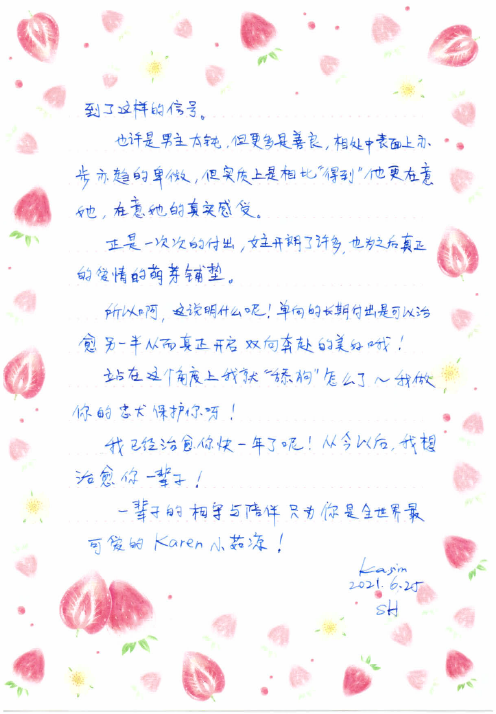 到了这样的信号。
也许是男主太钝，但更多是善良，相处中表面上亦
步亦趋的卑微，但实质上是相比"得到"他更在意
她，在意她的真实感受。
正是一次次的付出，女主开朗了许多，也为之后真正
的爱情的萌芽铺垫。
所以啊，这说明什么呢！单向的长期付出是可以治
愈另一半从而真正开启双向奔赴的美好哦！
站在这个角度上我就"舔狗"怎么了～我做
你的忠犬保护你呀！
我已经治愈你快一年了呢！从今以后，我想
治愈你一辈子！
一辈子的相守与陪伴只为你是全世界最
可爱的Karen小茹凉！
Kasin
2021.6.25
SH